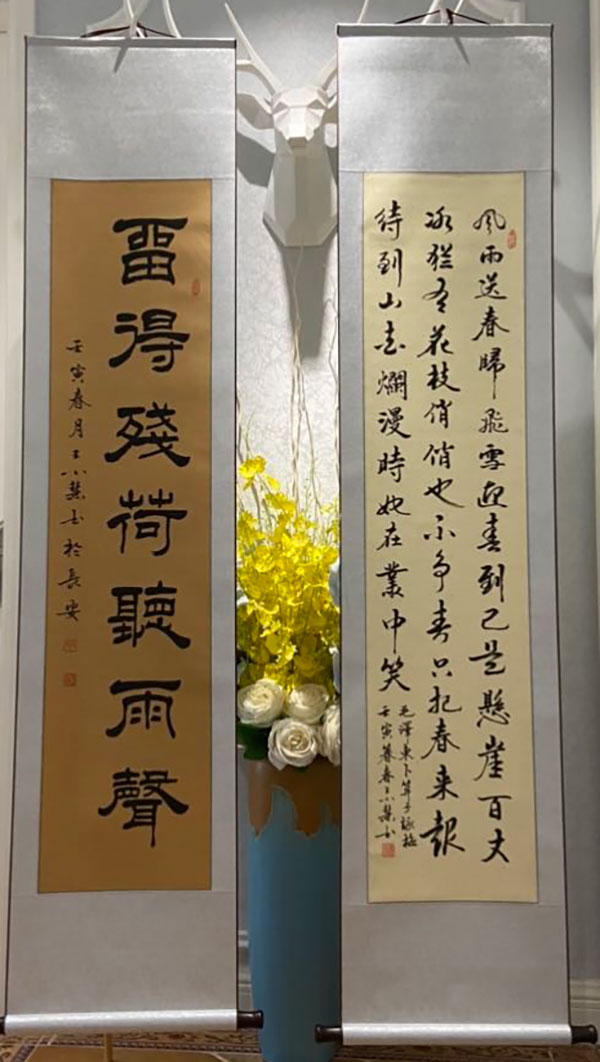 風雨送春歸飛雪迎春到已是懸崖百丈
冰猶有花枝俏俏也不爭春只把春來報
待到山花爛漫時她在叢中笑
毛澤東卜算子詠梅
壬寅暮春王小書
畱得殘荷聽雨聲
壬寅春月王小書於長安